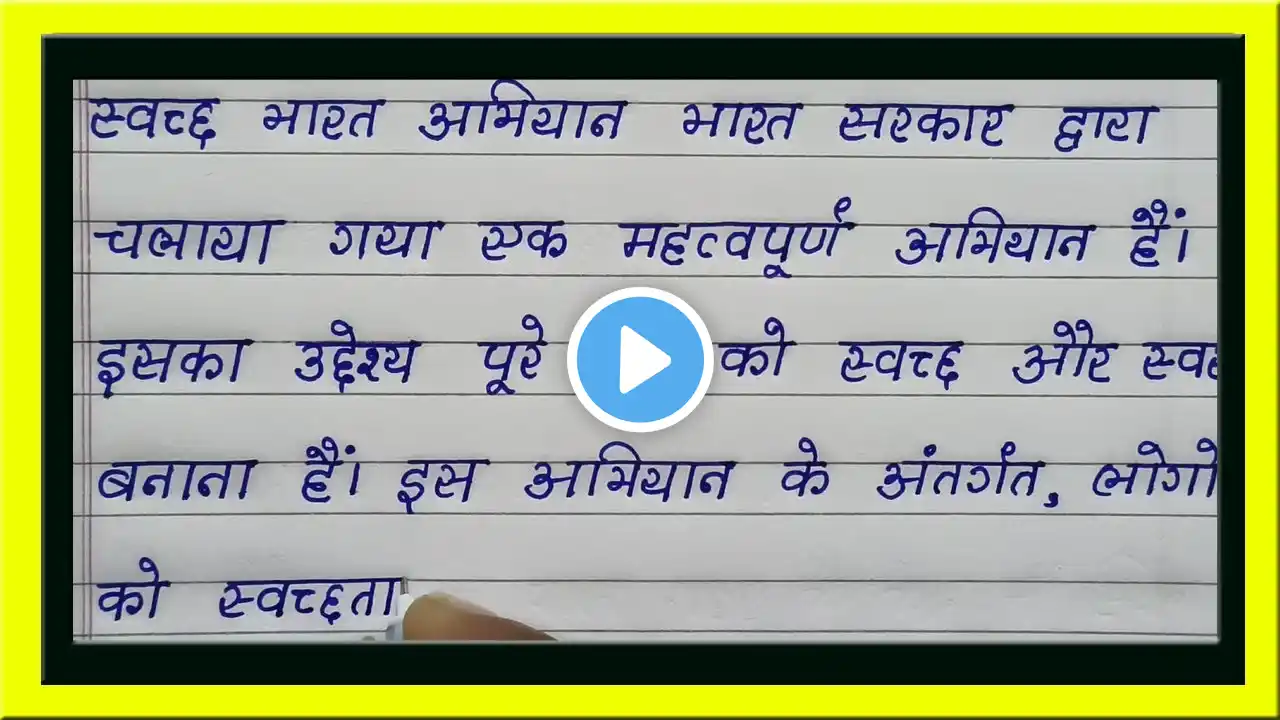 स्वच्छ भारत अभियान भारत सरकार द्वारा
चलाया गया एक महत्वपूर्ण अभियान हैं।
इसका उद्देश्य पूरे को स्वच्छ और
बनाना हैं। इस अभियान के अंतर्गत, लोगो
को स्वच्छता